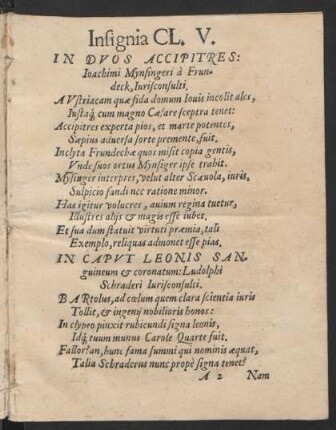 Insignia CL. V.
IN DVOS ACCIPITRES:
Ioachimi Mynsingeri à Frun-
deck, Iurisconsulti.
AVstriacam quæ fida domum Iouis incolit ales,
Iustaq́; cum magno Cæsare sceptra tenet:
Accipitres experta pios, et marte potentes,
Sæpius aduersa sorte premente, fuit.
Inclyta Frundechæ quos misit copia gentis,
Vnde suos ortus Mynsiger ipse trahit.
Mysinger interpres, velut alter Scæuola, iuris,
Sulpicio fandi nec ratione minor.
Has igitur volucres, auium regina tuetur,
Illustres alijs & magis esse iubet.
Et sua dum statuit virtuti præmia, tali
Exemplo, reliquas admonet esse pias.
IN CAPVT LEONIS SAN-
guineum & coronatum: Ludolphi
Schraderi Iurisconsulti.
BARtolus, ad cœlum quem clara scientia iuris
Tollit, & ingenij nobilioris honos:
In clypeo pinxit rubicundi signa leonis,
Idq́; tuum munus Carole Quarte fuit.
Fallor? an, hunc fama summi qui nominis æquat,
Talia Schraderus nunc propè signa tenet?
A 2 Nam